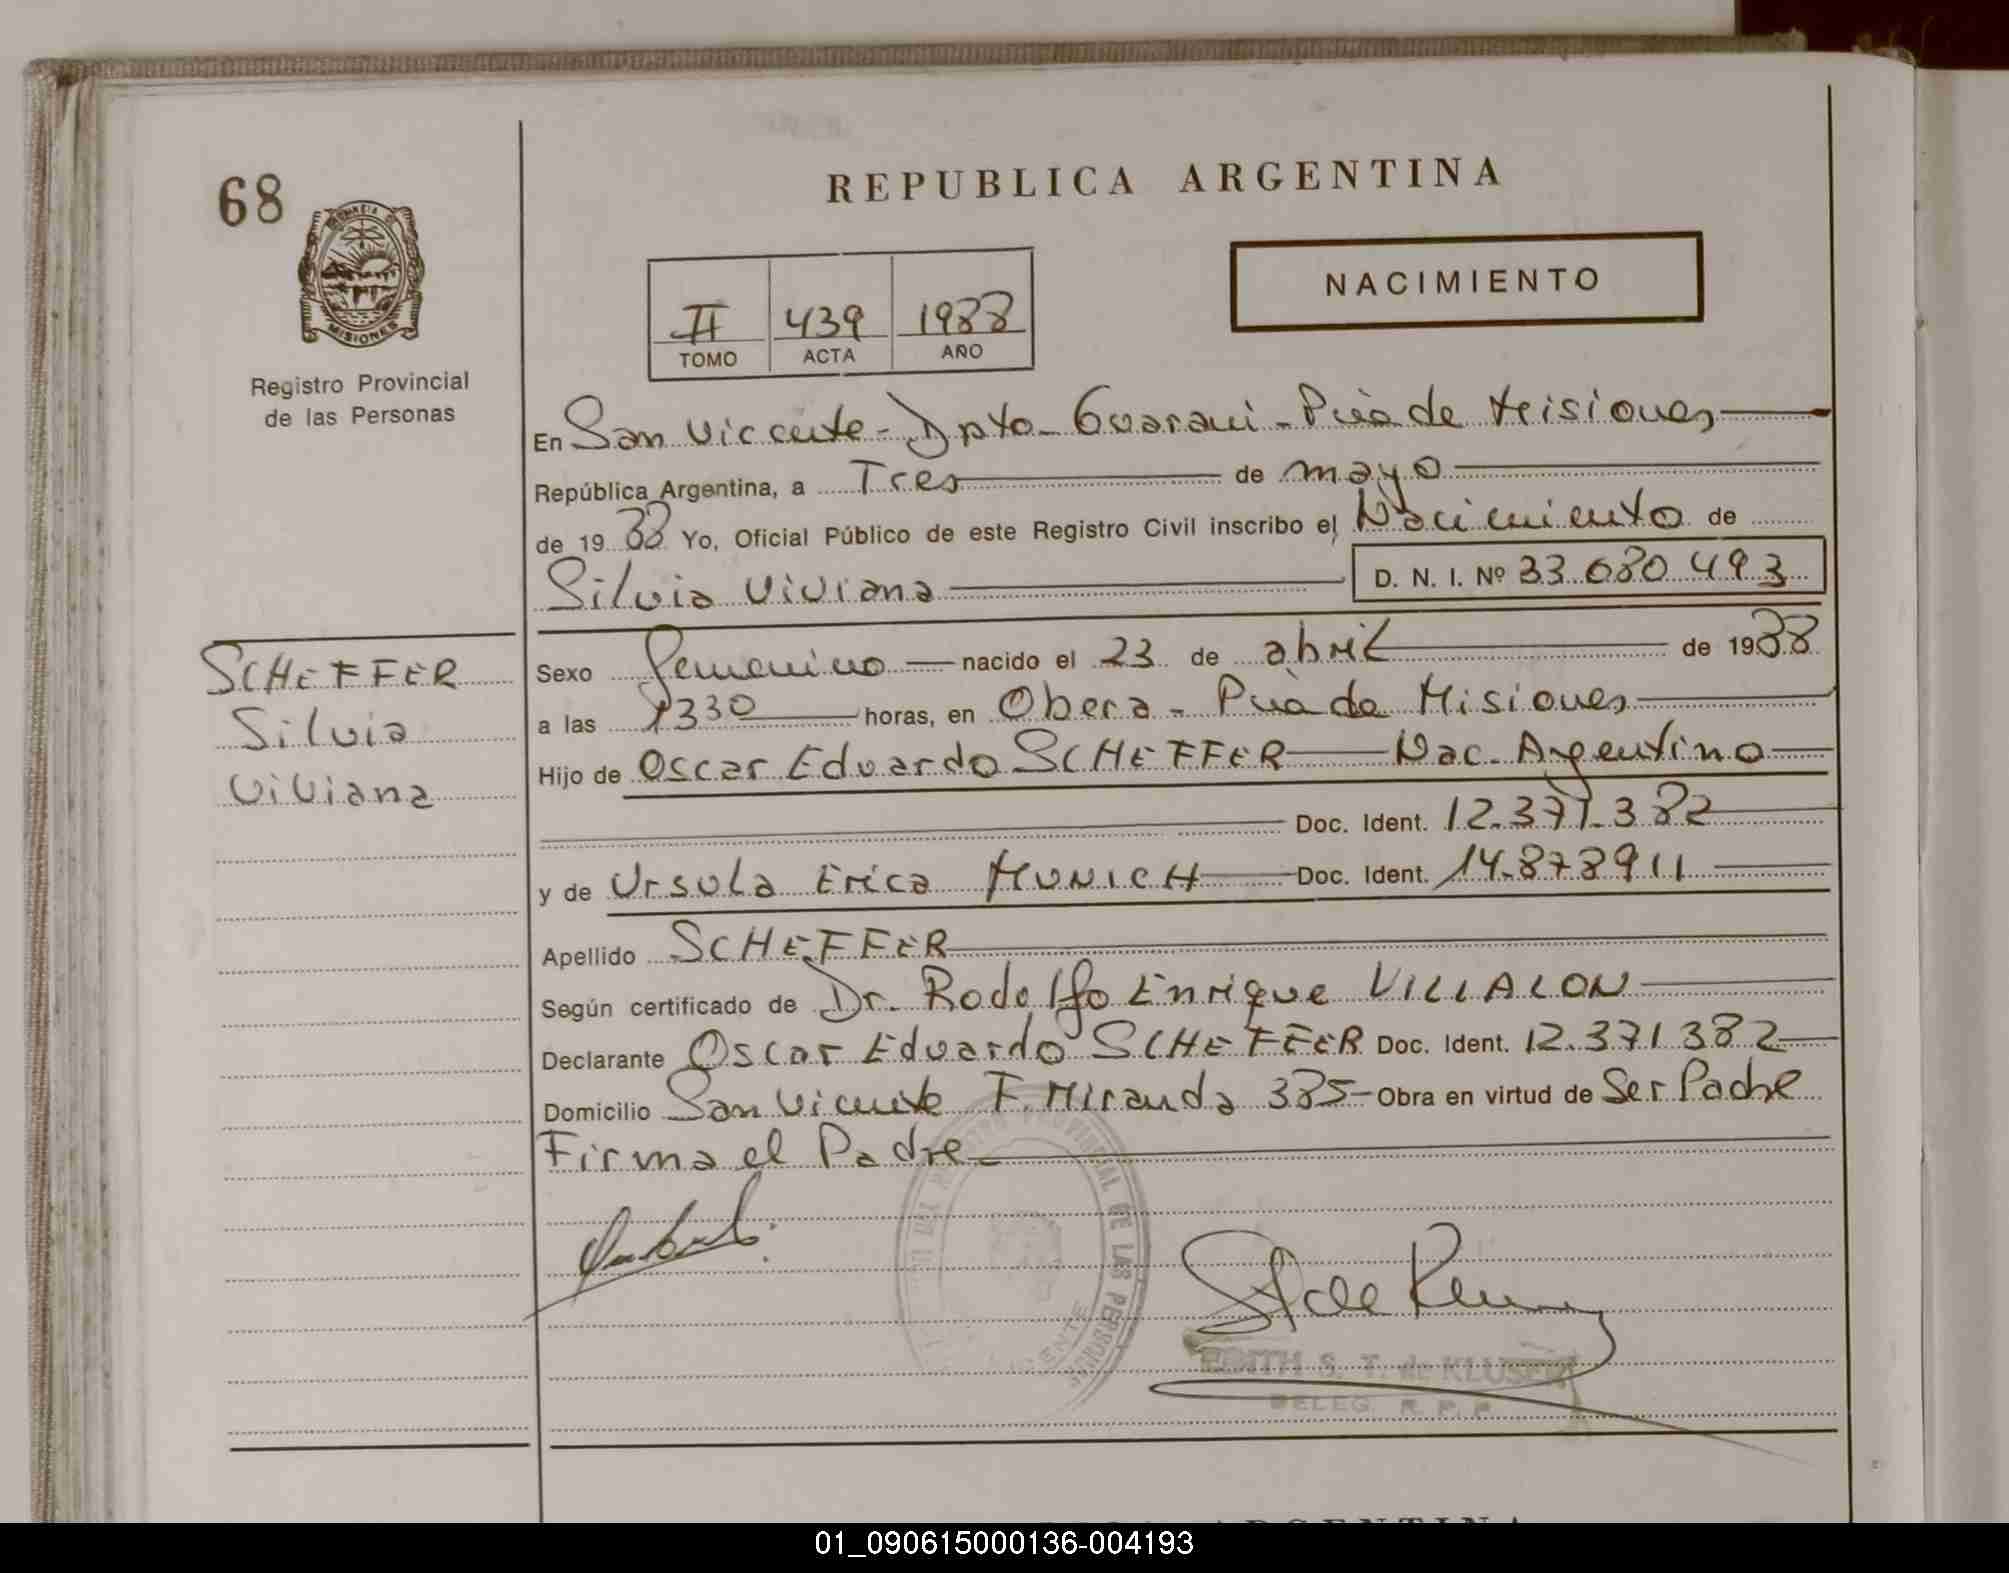 68
PROVINCIA DE
MISIONES
Registro Provincial
de las Personas
REPUBLICA ARGENTINA
NACIMIENTO
II 439 1988
TOMO ACTA AÑO
En San Vicente - Dpto - Guarani - Pcia de Misiones
República Argentina, a Tres de mayo
de 19 88 Yo, Oficial Público de este Registro Civil inscribo el Nacimiento de
Silvia Viviana D. N. I. Nº 33.680.493
SCHEFFER
Silvia
Viviana
Sexo femenino nacido el 23 de abril de 1988
a las 1330 horas, en Obera - Pcia de Misiones
Hijo de Oscar Eduardo SCHEFFER Nac. Argentino
Doc. Ident. 12.371.382
y de Ursula Erica MUNICH Doc. Ident. 14.878911
Apellido SCHEFFER
Según certificado de Dr. Rodolfo Enrique VILLALON
Declarante Oscar Eduardo SCHEFFER Doc. Ident. 12.371.382
Domicilio San Vicente F. Miranda 385 - Obra en virtud de Ser Padre
Firma el Padre
PROVINCIAL DE LAS PERSONAS
EDITH S. T. de KLUSER
DELEG. R. P. P.
01_090615000136-004193